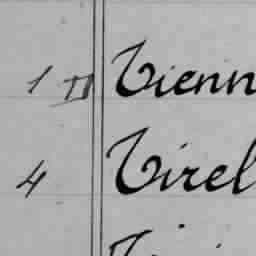 1 II Vienn
4 Tirel